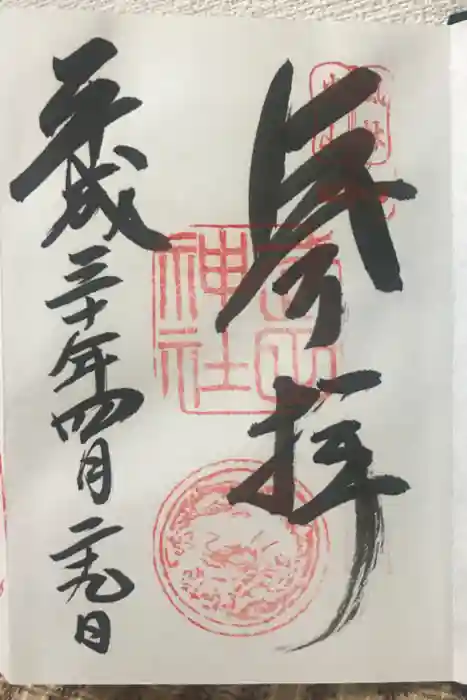 奉拝
神社
平成三十年四月二十九日